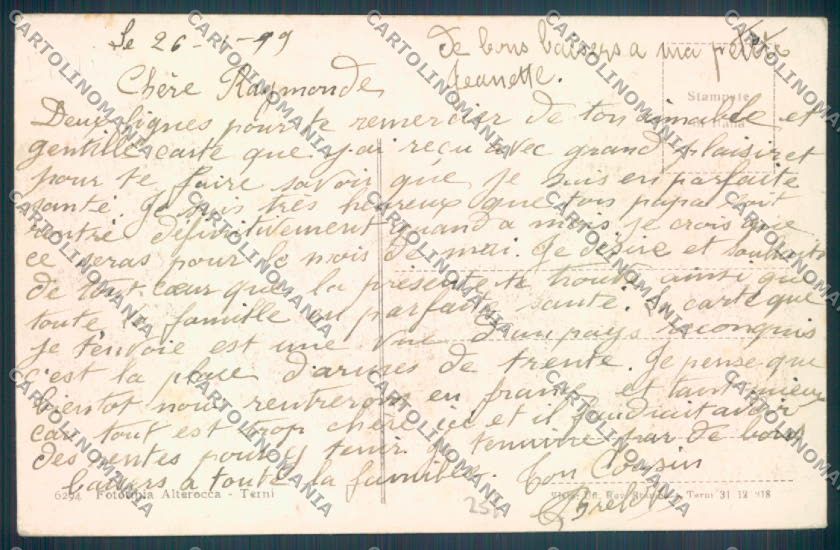 Le 26-4-99
De bons baisers a ma petite
Jeanette.
Chère Raymonde
Stampate
Deux lignes pour te remercier de ton aimable et
gentille carte que j'ai reçu avec grand plaisir et
pour te faire savoir que je suis en parfaite
santé. Je suis très heureux que ton papa soit
rentré définitivement quand a mois je crois que
ce seras pour le mois de mai. Je désire et souhaite
de tout cœur que la présente te trouve ainsi que
toute la famille en parfaite santé. La carte que
je t'envoie est une vue d'un pays reconquis
c'est la place d'armes de trente. Je pense que
bientot nous rentrerons en france et tant mieux
car tout est trop chère ici et il faudrait avoir
des rentes pour y tenir. Je termine par de bons
baisers a toute la famille.
Ton Cousin
6294 Fototipia Alterocca - Terni
Terni 31 12 918
256
CARTOLINOMANIA